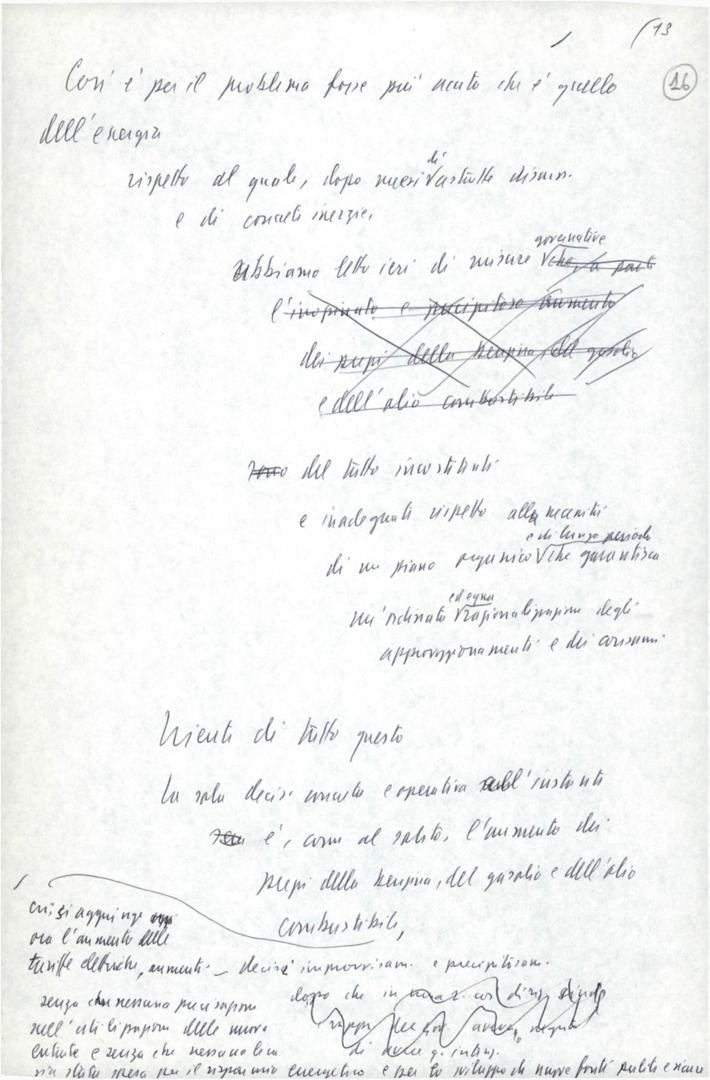 13
16
Così è per il problema forse più acuto che è quello
dell'energia
rispetto al quale, dopo mesi di astratte discuss.
e di concrete inerzie,
abbiamo letto ieri di misure governative che
l'inopinato e precipitoso aumento
dei prezzi della benzina del gasolio
e dell'olio combustibile
sono del tutto inconsistenti
e inadeguati rispetto alla necessità
di un piano organico e di lungo periodo che garantisca
un'ordinata ed equa razionalizzazione degli
approvvigionamenti e dei consumi
Niente di tutto questo
La sola decis. concreta e operativa all'instanti
è, come al solito, l'aumento dei
prezzi della benzina, del gasolio e dell'olio
combustibile,
cui si aggiunge
ora l'aumento delle
tariffe elettriche, aumenti decisi improvvisam. e precipitosam.
senza che nessuna precisazione
dopo che in
sull'utilizzazione delle nuove
entrate e senza che nessuna lira
di
sia stata spesa per il risparmio energetico e per lo sviluppo di nuove fonti pulite e sicure